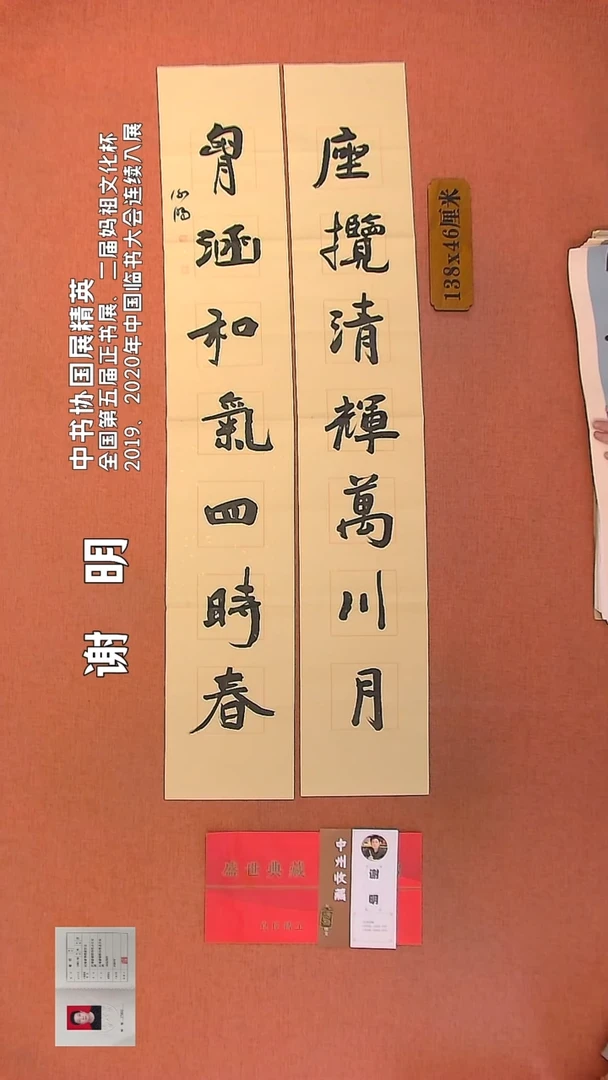 座攬清輝萬川月
胷涵和氣四時春
谢明
138x46厘米
中书协国展精英
全国第五届正书展、二届妈祖文化杯
2019、2020年中国临书大会连续入展
谢 明
盛世典藏
谢明